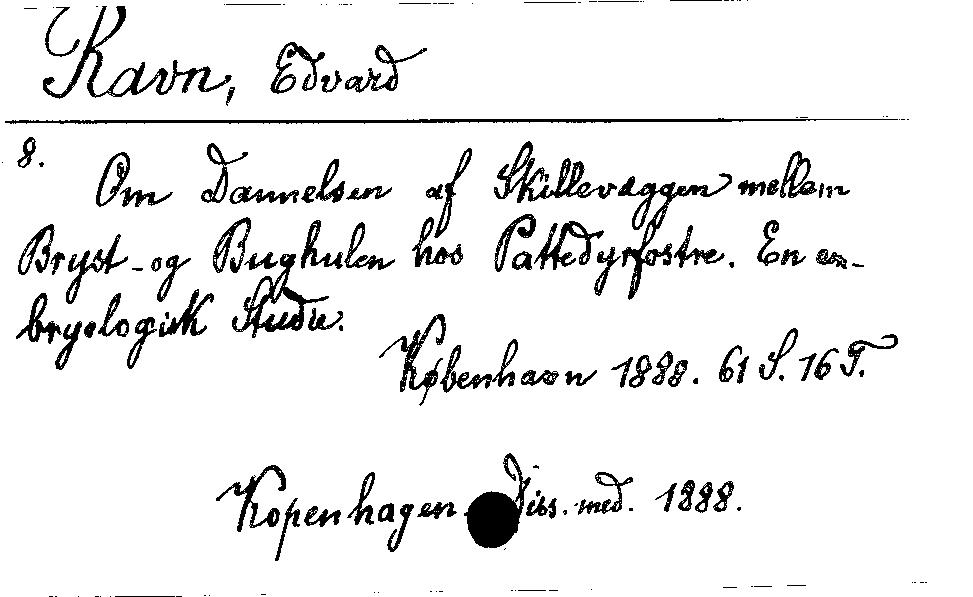 Ravn, Edvard
8.
Om Dannelsen af Skillevæggen mellem
Bryst-og Bughulen hos Pattedyrfostre. En em-
bryologisk Studie.
København 1888. 61 S. 16 T.
Kopenhagen. Diss. med. 1888.